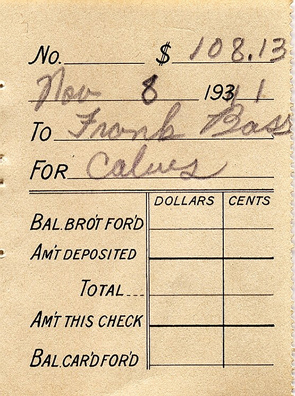 No. $ 108.13
Nov 8 1931 1
To Frank Bass
For Calves
DOLLARS CENTS
BAL. BRO'T FOR'D
AM'T DEPOSITED
TOTAL
AM'T THIS CHECK
BAL. CAR'D FOR'D